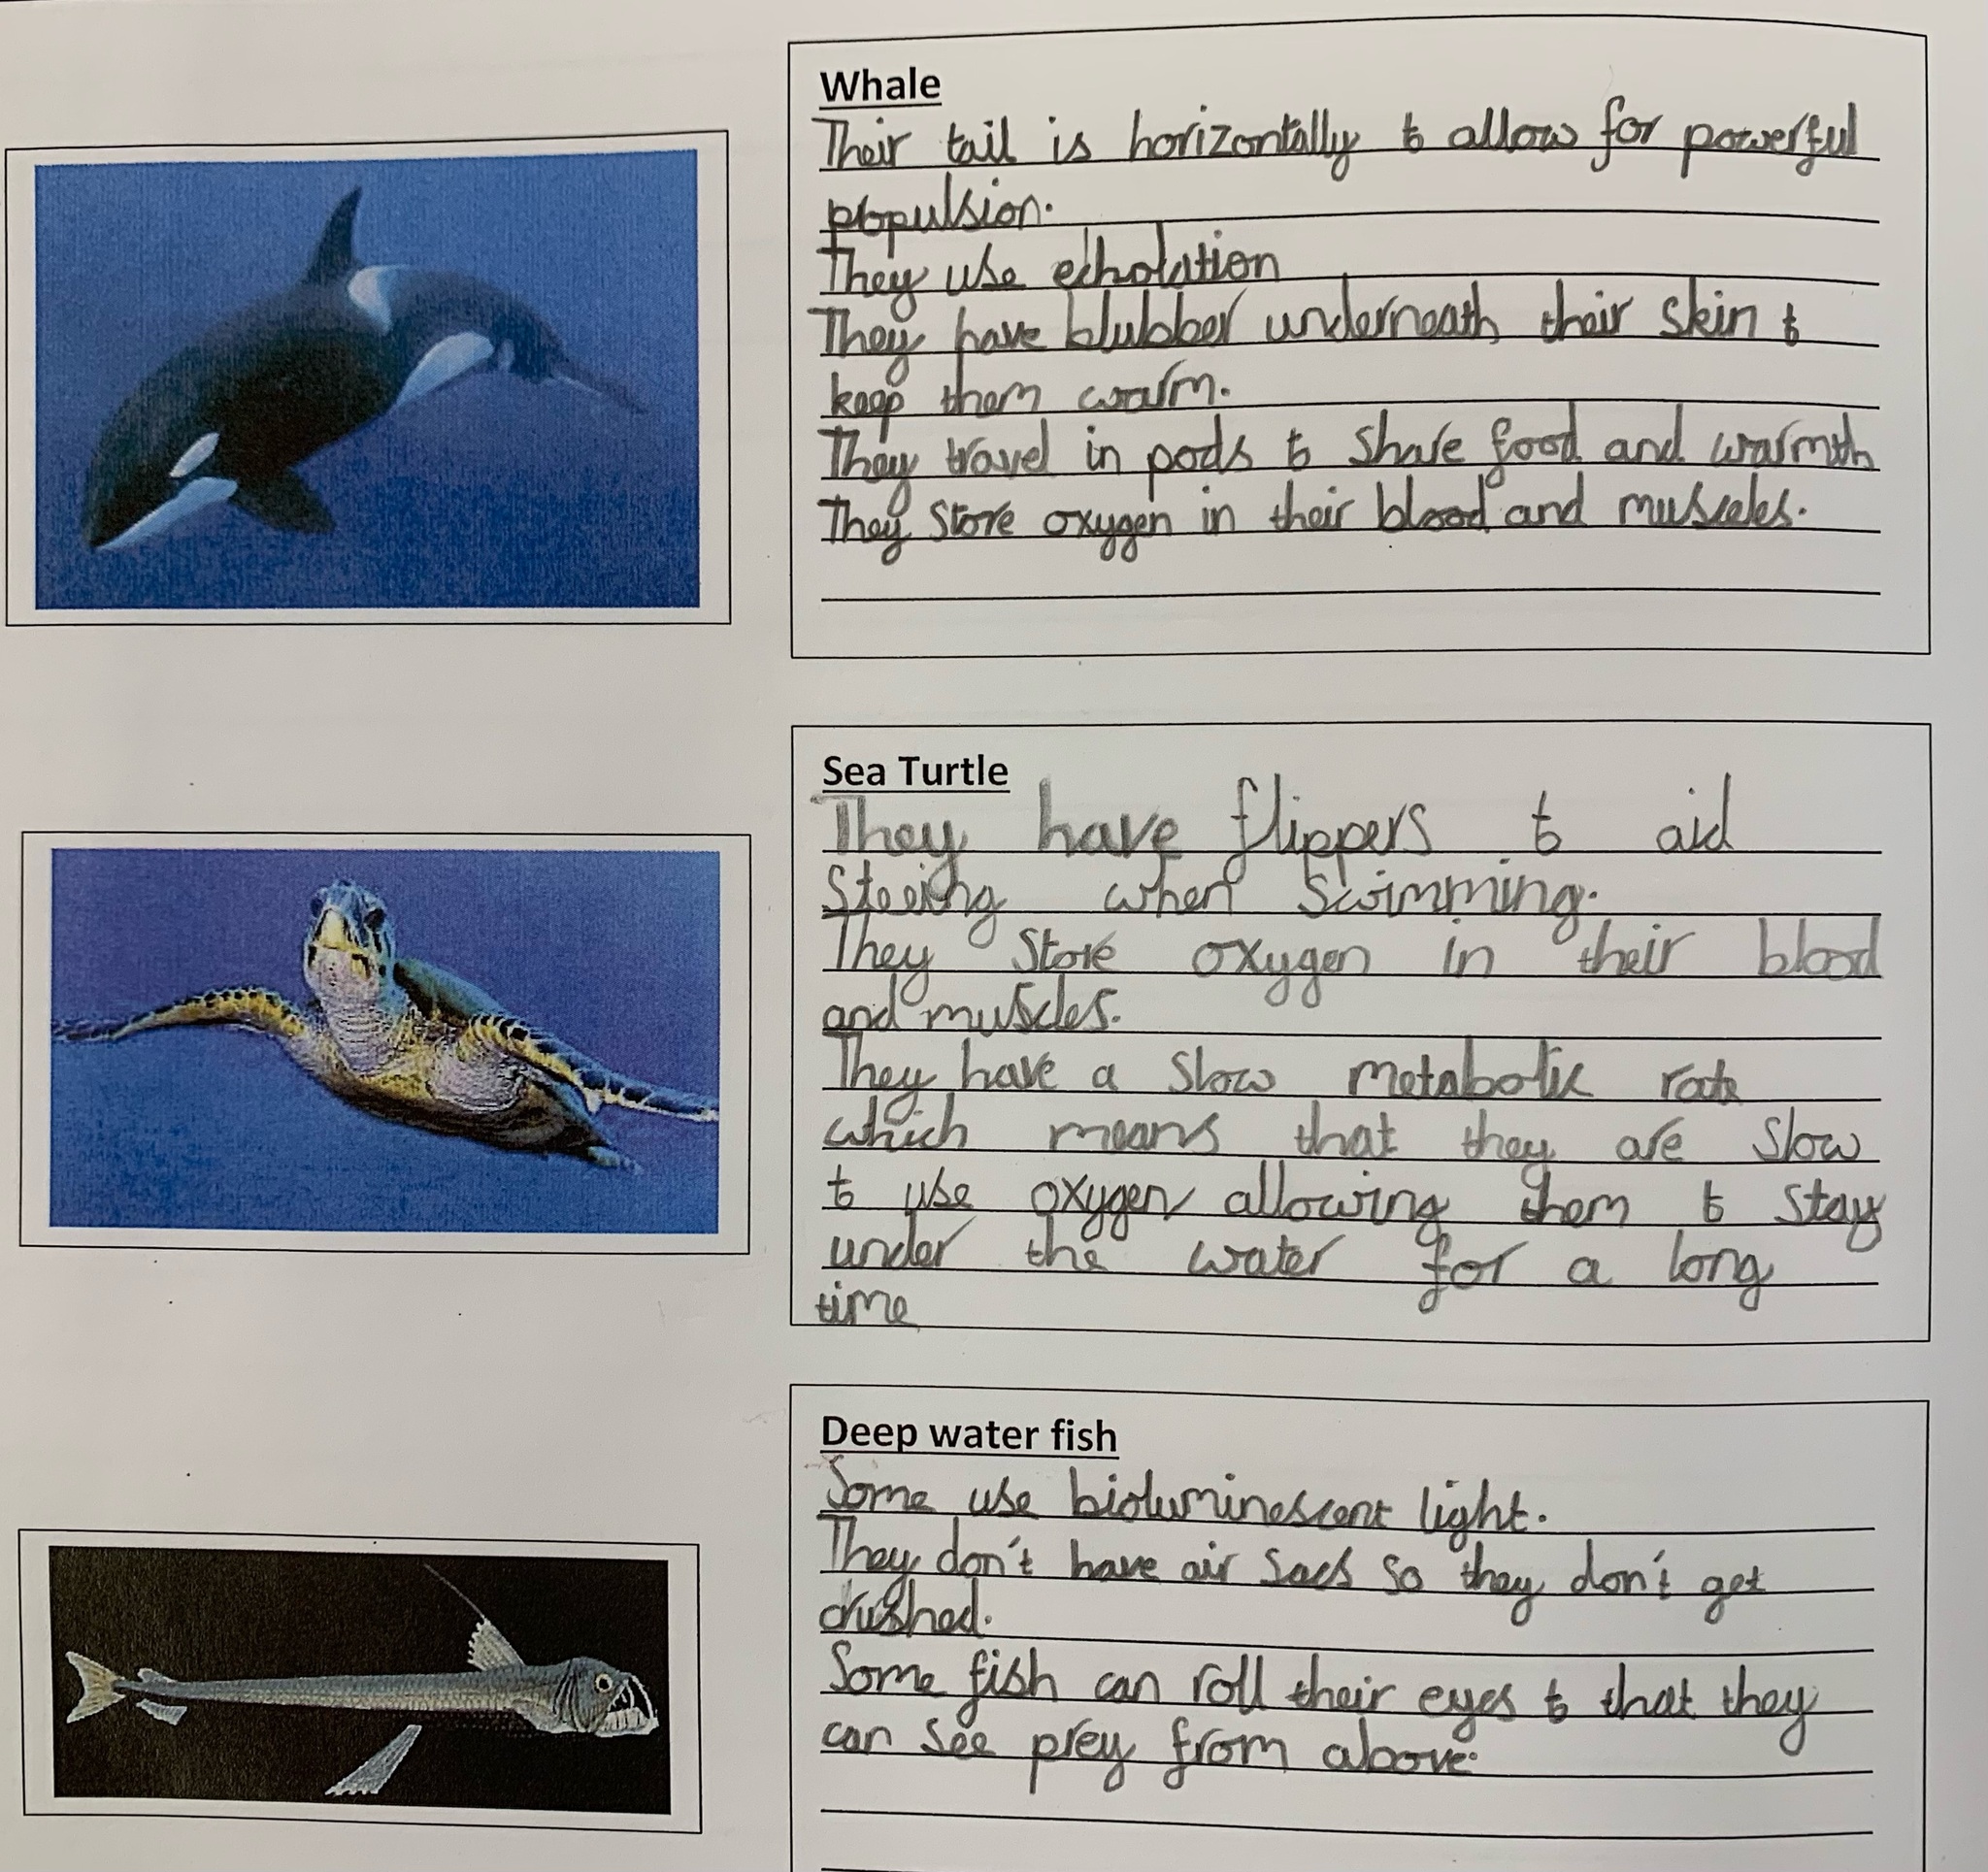 Whale
Their tail is horizontally to allow for powerful
propulsion.
They use echolation
They have blubber underneath their skin to
keep them warm.
They travel in pods to share food and warmth
They store oxygen in their blood and muscles.
Sea Turtle
They have flippers to aid
Steeing when Swimming.
They Store oxygen in their blood
and muscles.
They have a slow metabolic rate
which means that they are slow
to use oxygen allowing them to stay
under the water for a long
time
Deep water fish
Some use bioluminescent light.
They don't have air sacs so they don't get
crushed.
Some fish can roll their eyes to that they
can see prey from above.